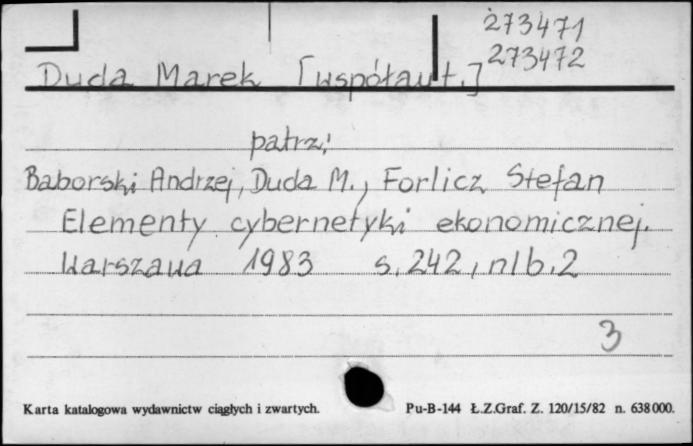 273471
273472
Duda Marek [współaut.]
patrz:
Baborski Andrzej, Duda M., Forlicz Stefan
Elementy cybernetyki ekonomicznej.
Warszawa 1983 s. 242, nlb. 2
3
Karta katalogowa wydawnictw ciągłych i zwartych. Pu-B-144 Ł.Z.Graf. Z. 120/15/82 n. 638000.